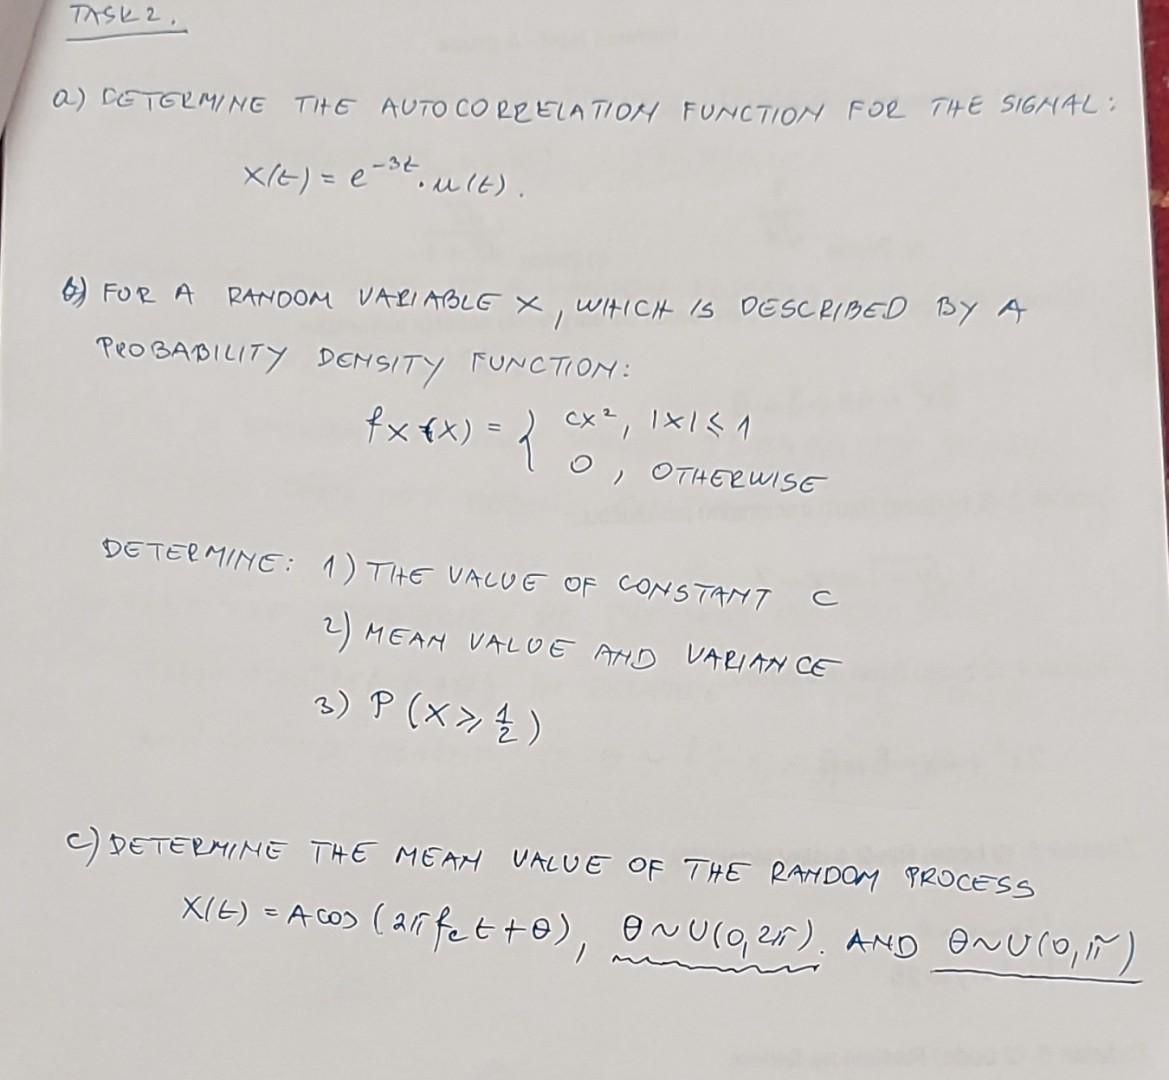 TASK 2.
a) DETERMINE THE AUTOCORRELATION FUNCTION FOR THE SIGNAL:
x(t) = e^{-3t} · u(t).
b) FOR A RANDOM VARIABLE X, WHICH IS DESCRIBED BY A
PROBABILITY DENSITY FUNCTION:
f_X(x) = { cx², |x| ≤ 1
0, OTHERWISE
DETERMINE: 1) THE VALUE OF CONSTANT C
2) MEAN VALUE AND VARIANCE
3) P(X ≥ 1/2)
c) DETERMINE THE MEAN VALUE OF THE RANDOM PROCESS
X(t) = A cos (2π f_c t + θ), θ ~ U(0, 2π). AND θ ~ U(0, π)